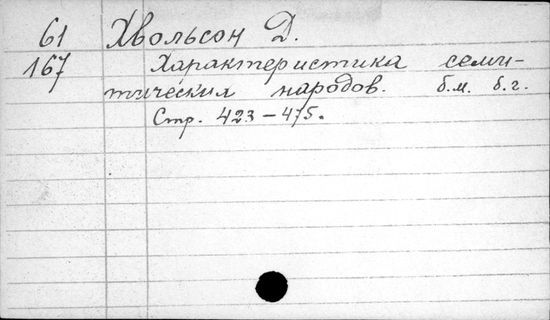 61 Хвольсон Д.
167 Характеристика семи-
тических народов. б.м. б.г.
Стр. 423-475.